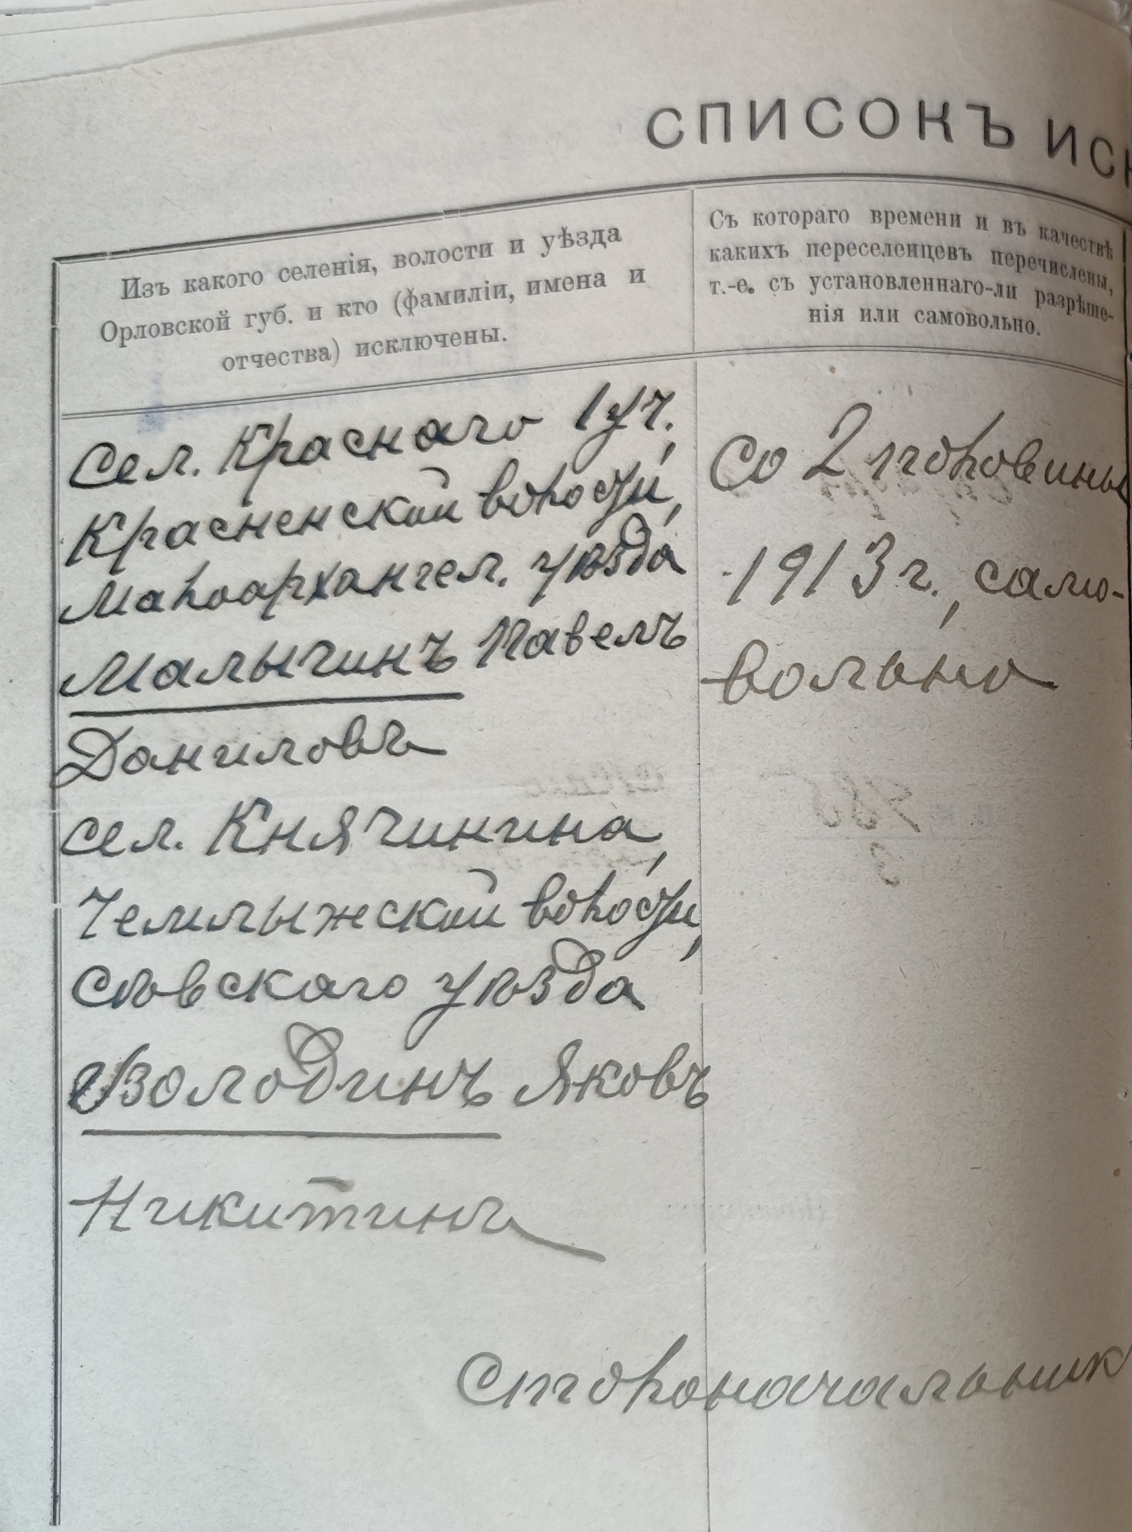 СПИСОКЪ ИСК
Изъ какого селенія, волости и уѣзда
Орловской губ. и кто (фамиліи, имена и
отчества) исключены.
Съ котораго времени и въ качествѣ
какихъ переселенцевъ перечислены,
т.-е. съ установленнаго-ли разрѣше-
нія или самовольно.
Сел. Краснаго 1 уч.,
Красненской волости,
Малоархангел. уѣзда
Малычинъ Павелъ
Даниловъ
сел. Княчинина,
Чемлыжской волости,
Сѣвскаго уѣзда
Володинъ Яковъ
Никитинъ
Со 2 половины
1913 г., само-
вольно
Столоначальник